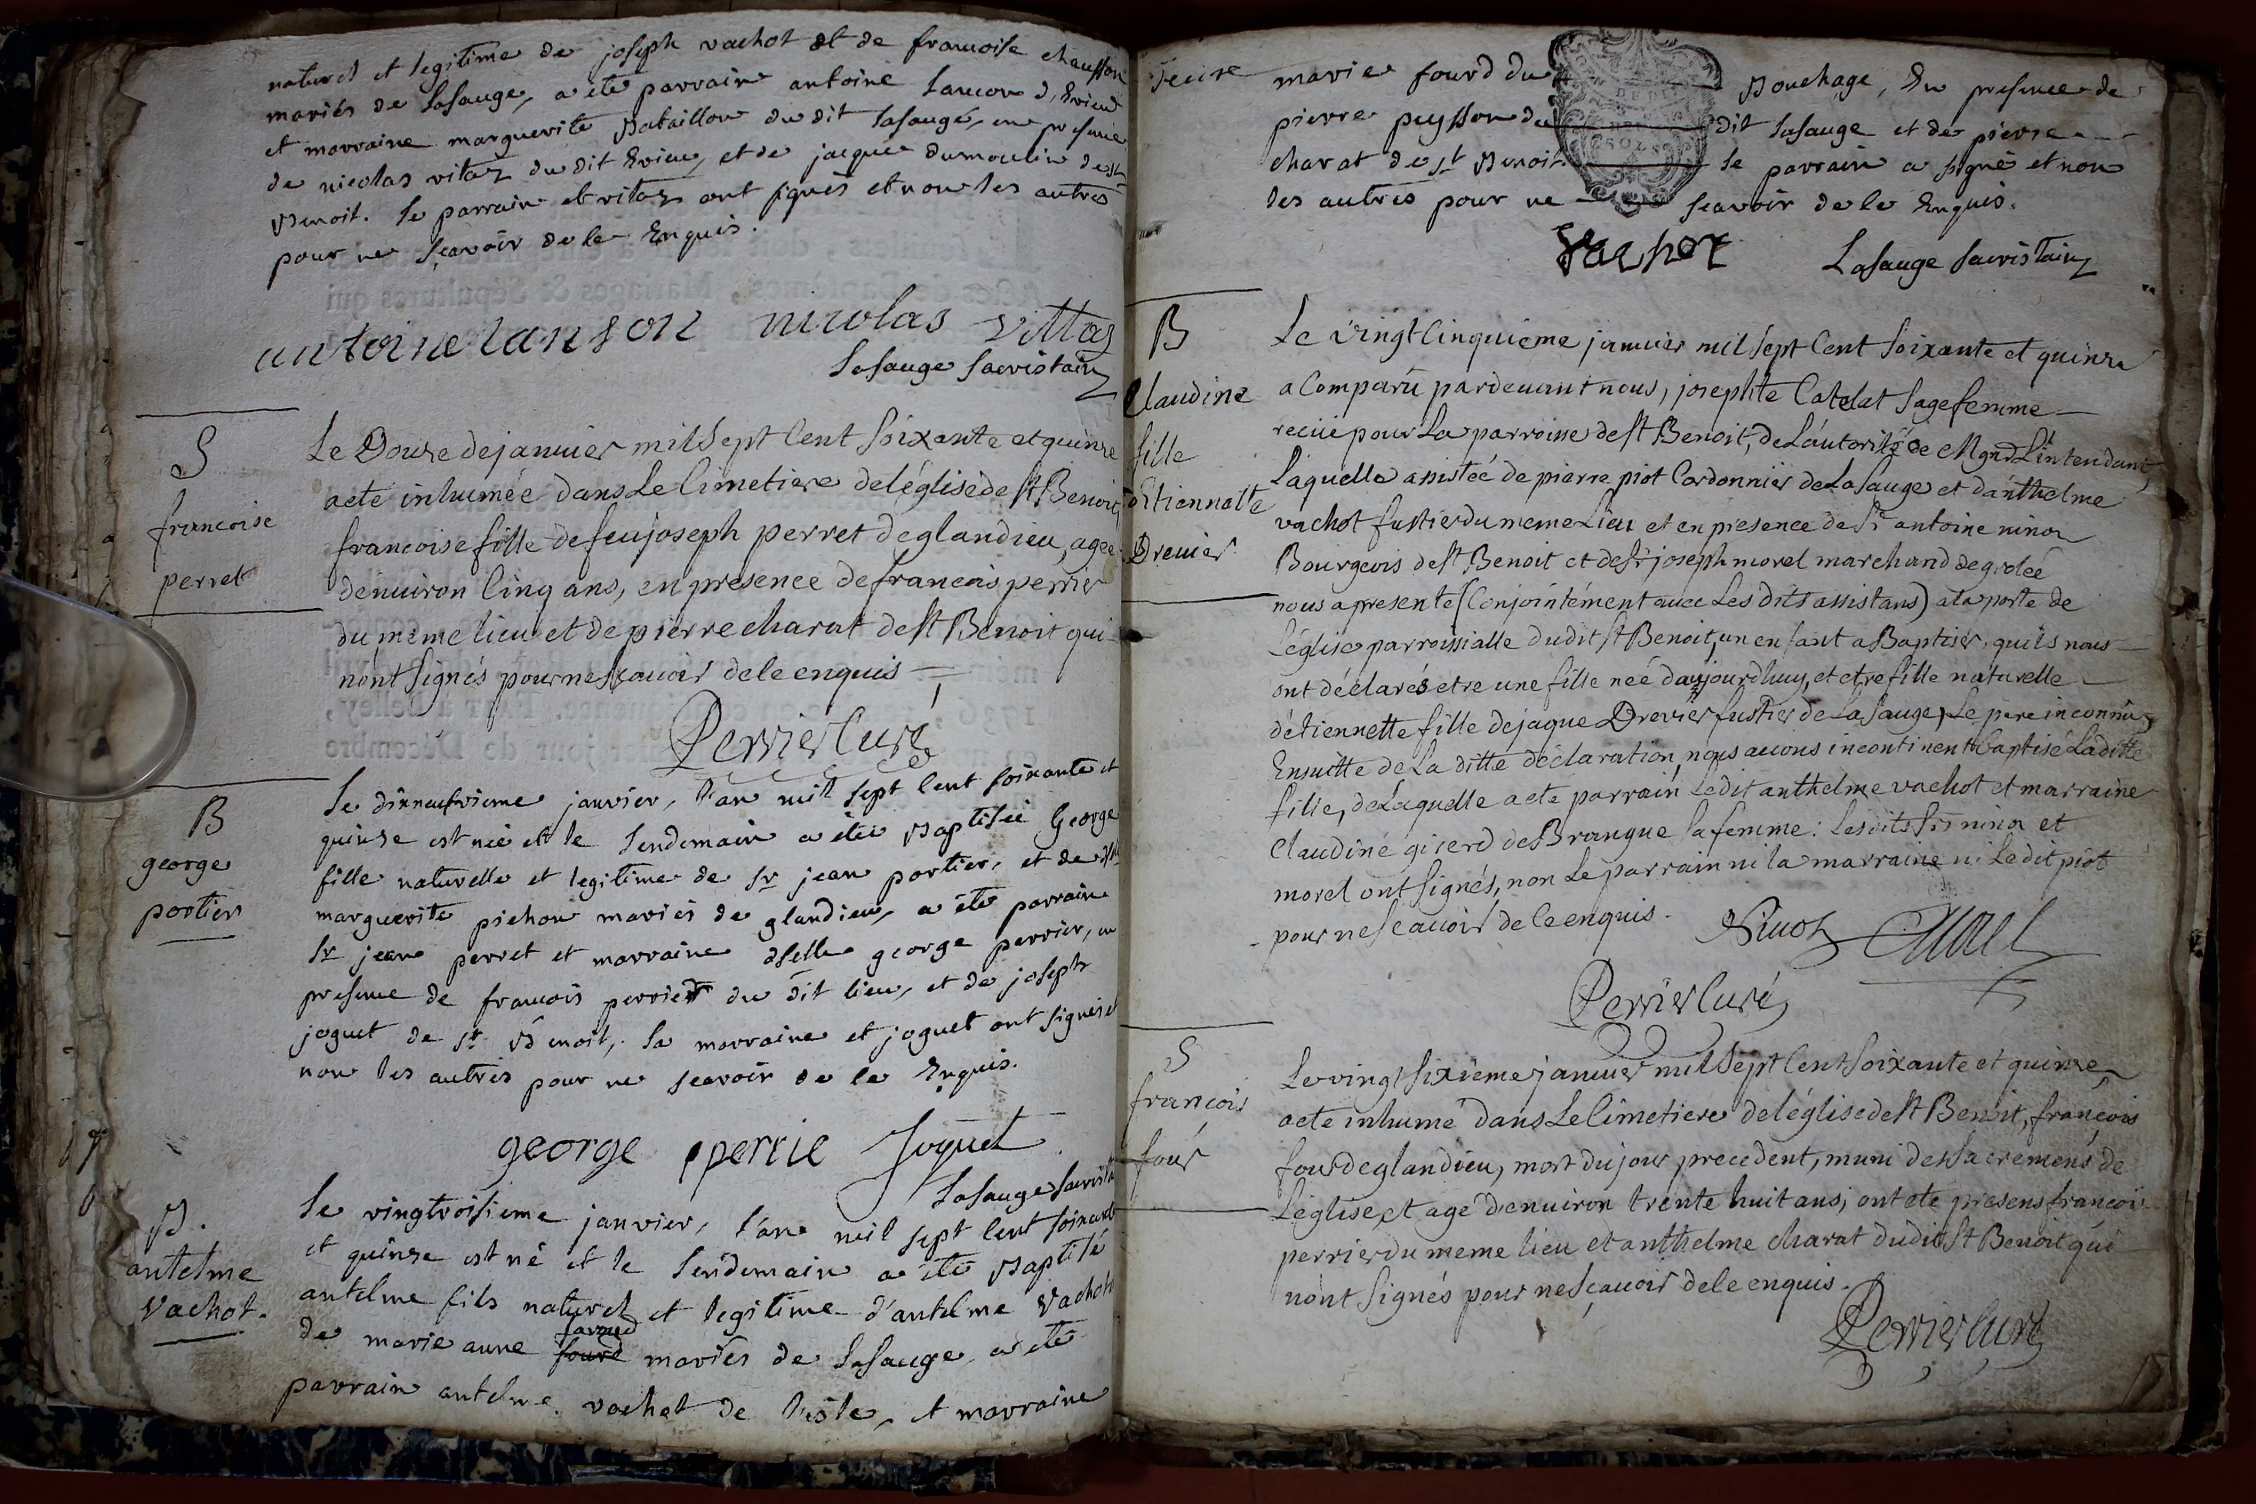 naturel et legitime de joseph vachot et de francoise chausson
mariés de Lasauge, a été parrain antoine Lancon d'Evieu
et marraine marguerite Bataillon du dit Lasauge, en presence
de nicolas vitoz du dit Evieu, et de jacque dumoulin de st
Benoit. le parrain et vitoz ont signés et non les autres
pour ne sçavoir de le Enquis.
antoine lanson nicolas vittoz
Lasauge sacristain
S
francoise
perret
Le Douze de janvier mil sept Cent soixante et quinze
a eté inhumée dans Le Cimetiere de léglise de St Benoit
francoise fille de feu joseph perret de glandieu, agee
denuiron Cinq ans, en presence de francois perrier
du même lieu et de pierre charat de St Benoit qui
nont signés pour ne scauoir de le enquis
Perrier Curé
B
george
portier
Le dixneuvieme janvier, l'an mil sept Cent soixante et
quinze est née et le Lendemain a été Baptisée George
fille naturelle et legitime de sr jean portier, et de dlle
marguerite pichon mariés de glandieu, a été parrain
sr jean perret et marraine dselle george perrier, en
presence de francois perrier du dit lieu, et de joseph
joguet de st Benoit, la marraine et joguet ont signés et
non les autres pour ne scavoir de le Enquis.
george pperrie Joguet
Lasauge sacrista
B.
antelme
Vachot.
Le vingtroisieme janvier, l'an mil sept Cent soixante
et quinze est né et le Lendemain a été Baptisé
antelme fils naturel et legitime d'antelme Vachot
de marie anne fourd mariés de Lasauge, a été
parrain antelme vachot de l'isle, et marraine
marie fourd du Bouchage, En presence de
pierre puysson du dit Lasauge et de pierre
charat de st Benoit. le parrain a signé et non
les autres pour ne scavoir de le Enquis.
Vachot Lasauge sacristain
B
Claudine
fille
d'Etiennette
Drevier
Le vingt Cinquieme januier mil sept Cent soixante et quinze
a Comparu pardeuant nous, josephte Catelat sage femme
recüe pour La parroisse de St Benoit, de Láutorité de Mgnr L'intendant,
Laquelle assistée de pierre piot Cordonnier de La Sauge et dánthelme
vachot fustier du meme Lieu et en presence de Sr antoine ninoz
Bourgeois de St Benoit et de Sr joseph morel marchand de grolée
nous a presenté (Conjointément auec Les dits assistans) a la porte de
Léglise parroissialle du dit St Benoit, un enfant a Baptiser, quils nous
ont déclarés etre une fille neé daujourdhuy, et etre fille naturelle
détiennette fille de jaque Drevier fustier de La Sauge, Le pere inconnu,
Ensuitte de La ditte déclaration nous auons incontinent Baptisé Laditte
fille, de Laquelle a eté parrain Ledit anthelme vachot et marraine
Claudine girerd de Brangue sa femme: Lesdits Srs ninoz et
morel ont signés, non Le parrain ni la marraine ni Le dit piot
pour ne scauoir de le enquis.
Ninoz Morel
Perrier Curé
S
francois
four
Le vingt sixieme januier mil sept Cent soixante et quinze
a eté inhumé dans Le Cimetiere de léglise de St Benoit, francois
four de glandieu, mort du jour precedent, muni des sacremens de
Léglise, et agé denuiron trente huit ans; ont eté presens francois
perrier du meme lieu et anthelme charat du dit St Benoit qui
nont signés pour ne sçauoir de le enquis.
Perrier Curé